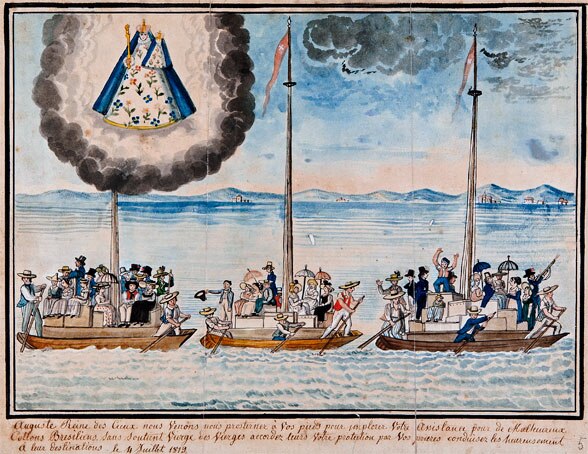 Auguste Reine des Cieux nous venons nous prosterner à Vos pieds pour implorer Votre Assistance pour de Malheureux
Collons Bresiliens, sans soutient Vierge des Vierges accordez leurs Votre protection par Vos prieres conduisez les heureusement
à leur destinations le 4 Juillet 1819
5